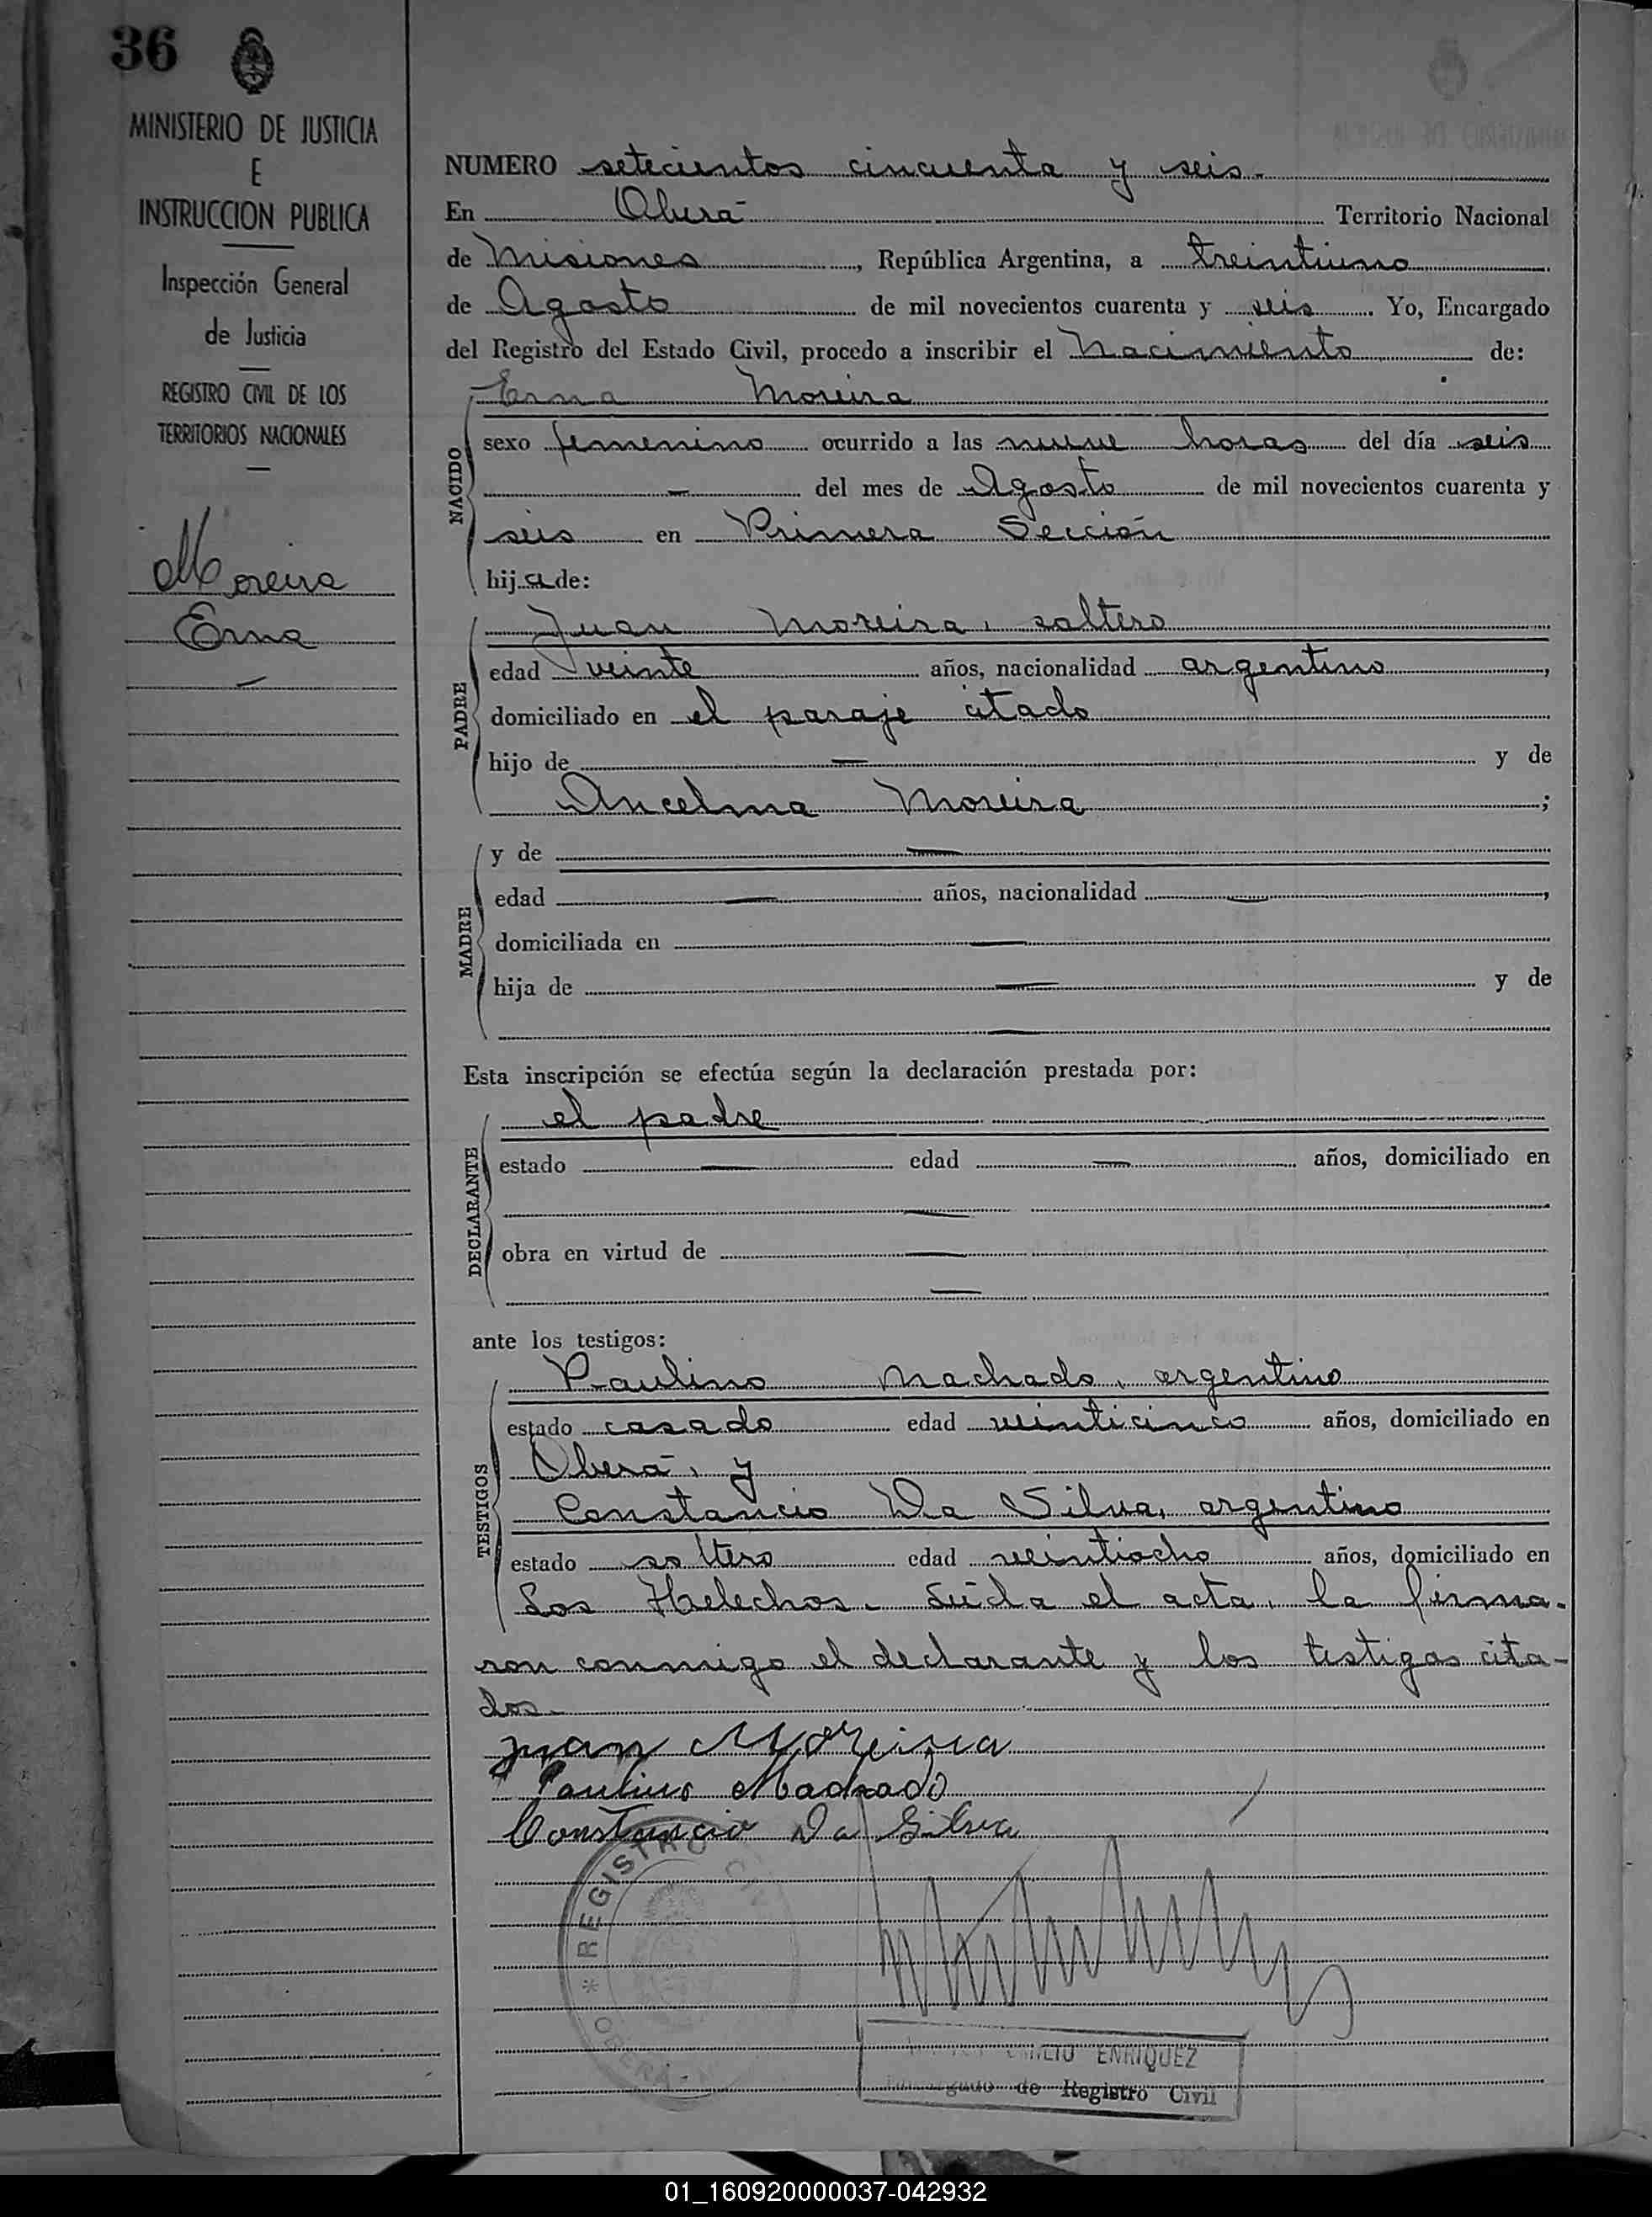 36
MINISTERIO DE JUSTICIA
E
INSTRUCCION PUBLICA
Inspección General
de Justicia
REGISTRO CIVIL DE LOS
TERRITORIOS NACIONALES
Moreira
Erna
NUMERO setecientos cincuenta y seis.
En Oberá Territorio Nacional
de Misiones, República Argentina, a treintiuno
de Agosto de mil novecientos cuarenta y seis. Yo, Encargado
del Registro del Estado Civil, procedo a inscribir el Nacimiento de:
Erna Moreira
NACIDO
sexo femenino ocurrido a las nueve horas del día seis
— del mes de Agosto de mil novecientos cuarenta y
seis en Primera Sección
hija de:
PADRE
Juan Moreira, soltero
edad veinte años, nacionalidad argentino,
domiciliado en el paraje citado
hijo de — y de
Ancelma Moreira;
MADRE
y de —
edad — años, nacionalidad —,
domiciliada en —
hija de — y de
—
Esta inscripción se efectúa según la declaración prestada por:
DECLARANTE
el padre
estado — edad — años, domiciliado en
—
obra en virtud de —
—
ante los testigos:
TESTIGOS
Paulino Machado, argentino
estado casado edad veinticinco años, domiciliado en
Oberá, y
Constancio Da Silva, argentino
estado soltero edad veintiocho años, domiciliado en
Los Helechos. Leída el acta, la firma-
ron conmigo el declarante y los testigos cita-
dos.-
Juan Moreira
Paulino Machado
Constancio Da Silva
* REGISTRO CIVIL
OBERA
EMILIO ENRIQUEZ
Encargado de Registro Civil
01_160920000037-042932